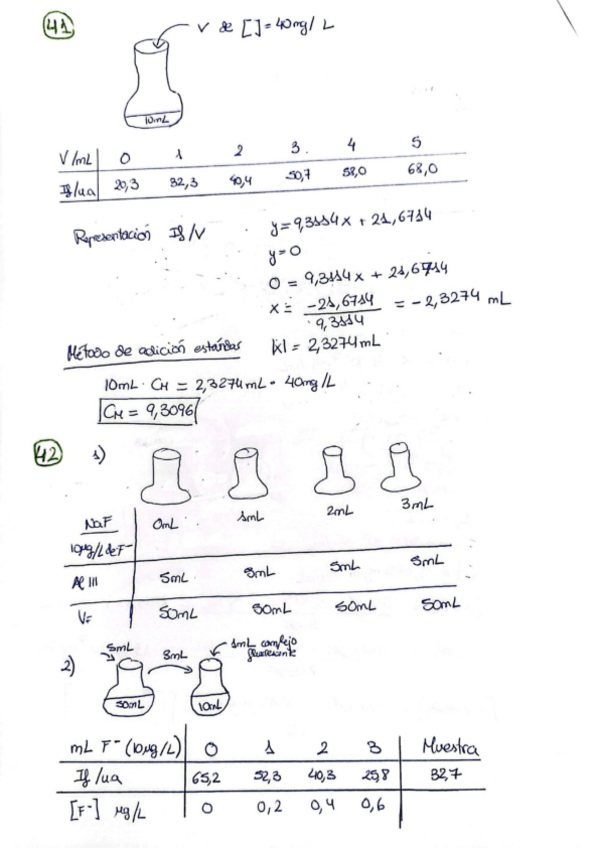 41
V de [ ] = 40mg/L
10mL
V/mL 0 1 2 3. 4 5
If/ua 20,3 32,3 40,4 50,7 58,0 68,0
Representación If/V
y = 9,3114x + 21,6714
y = 0
0 = 9,3114x + 21,6714
x = -21,6714 / 9,3114 = -2,3274 mL
Método de adición estándar |x| = 2,3274mL
10mL · CM = 2,3274mL · 40mg/L
CM = 9,3096
42 1)
NaF 0mL 1mL 2mL 3mL
10µg/L de F-
Al III 5mL 5mL 5mL 5mL
V= 50mL 50mL 50mL 50mL
2) 5mL 3mL 1mL complejo
fluorescente
50mL 10mL
mL F- (10µg/L) 0 1 2 3 Muestra
If/ua 65,2 52,3 40,3 25,8 32,7
[F-] µg/L 0 0,2 0,4 0,6